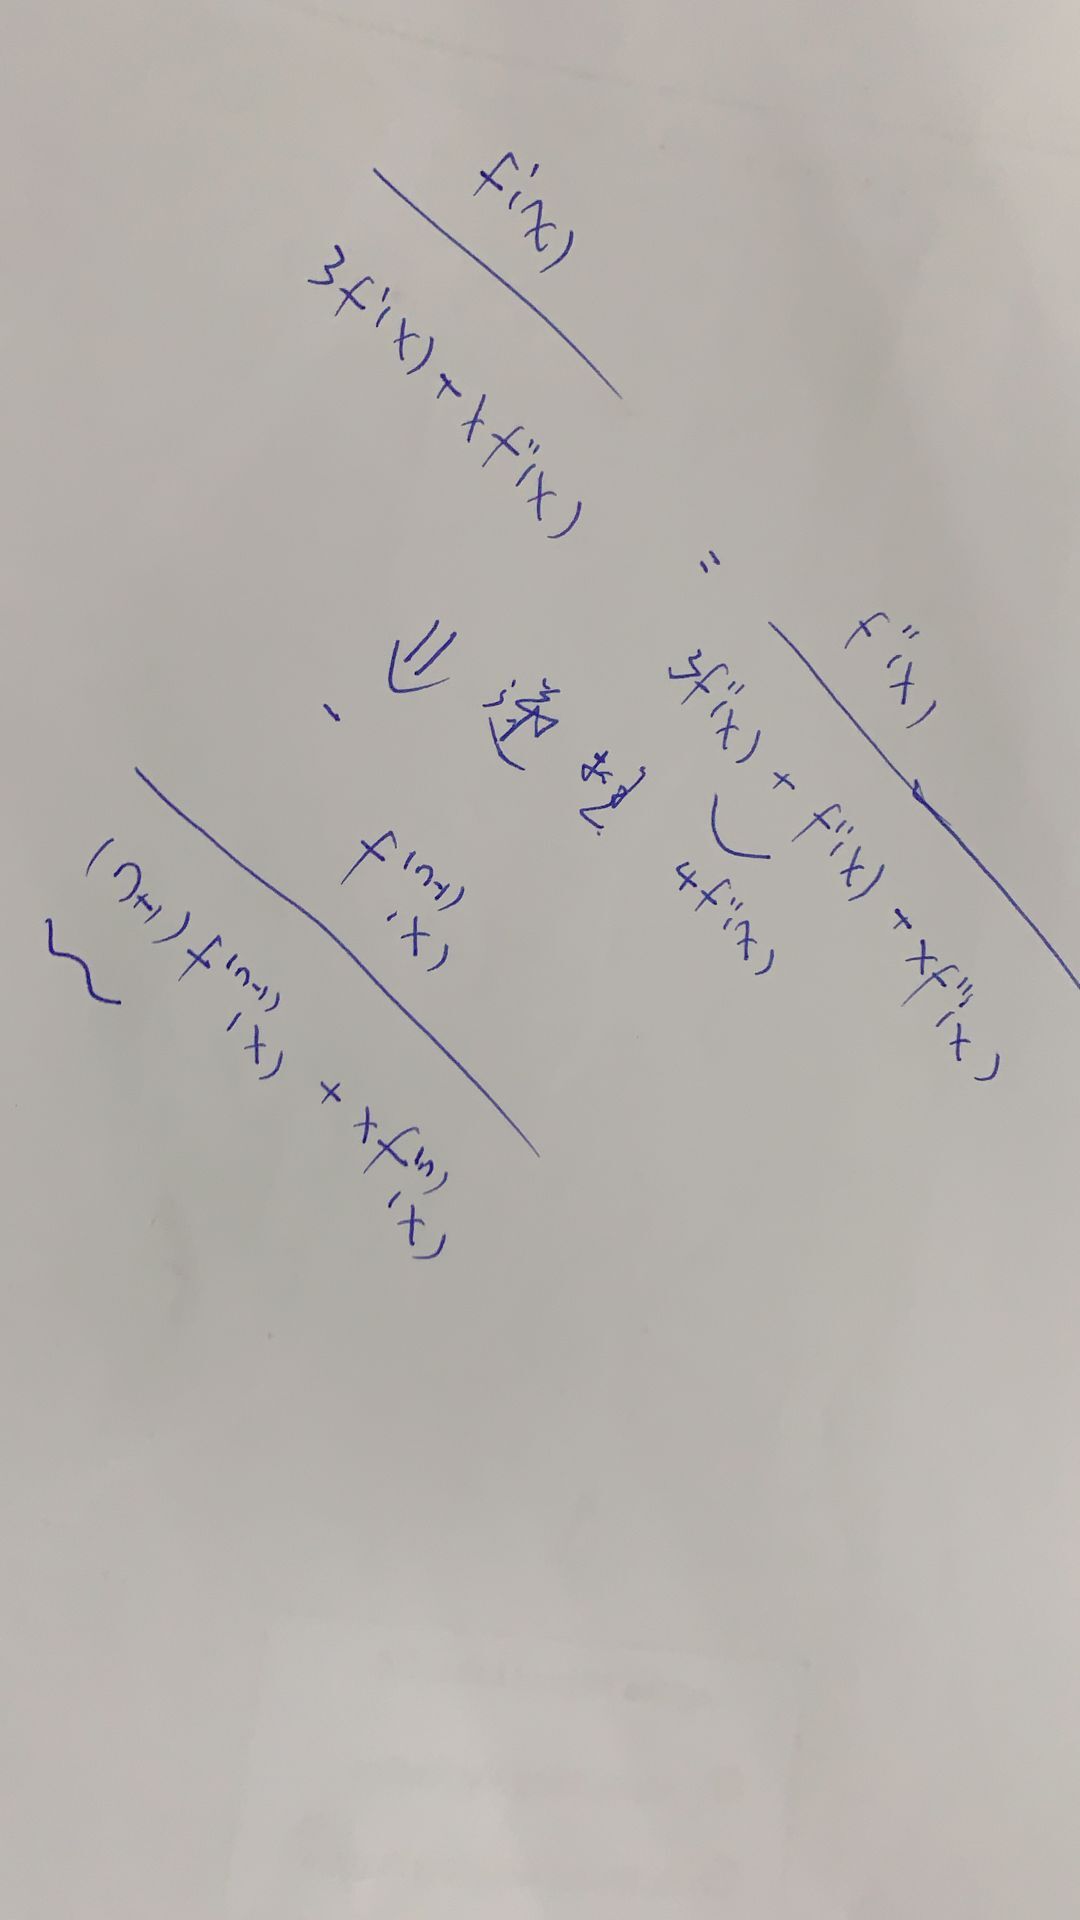 f'(x)
3f'(x) + xf''(x)
=
f''(x)
3f''(x) + f''(x) + xf'''(x)
4f''(x)
⇓ 递推
f⁽ⁿ⁻¹⁾(x)
(n+1)f⁽ⁿ⁻¹⁾(x) + xf⁽ⁿ⁾(x)